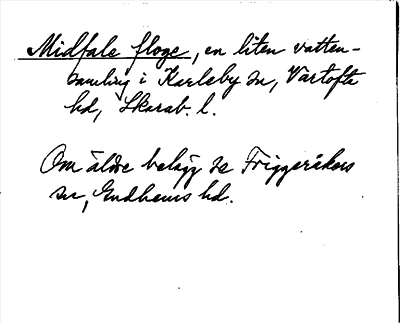 Midfale floge, en liten vatten-
samling i Karleby sn, Vartofta
hd, Skarab. l.
Om äldre belägg se Friggeråkers
sn, Gudhems hd.